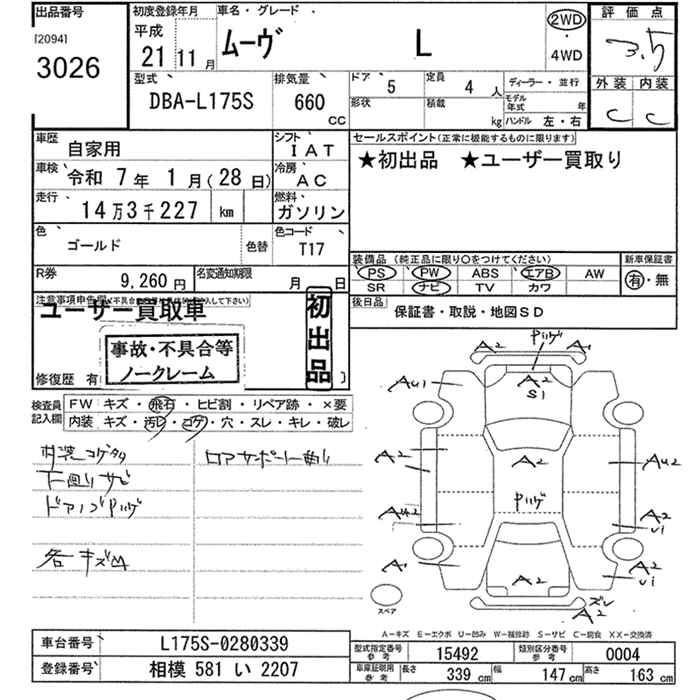 出品番号
[2094]
3026
初度登録年月
平成
21 11 月
車名・グレード
ムーヴ L
2WD
・
4WD
評価点
3.5
外装 内装
C C
型式
DBA-L175S
排気量
660
CC
ドア 5
定員 4 人
形状
積載 kg
ディーラー・並行
モデル年式 年
ハンドル 左・右
車歴
自家用
シフト
IAT
車検 令和 7年 1月(28日)
冷房
AC
走行
14万3千227 km
燃料
ガソリン
色
ゴールド
色替
色コード
T17
R券
9,260 円
名変通知期限
月 日
セールスポイント(正常に機能するものに限ります)
★初出品 ★ユーザー買取り
装備品 (純正品に限り〇をつけてください)
PS PW ABS エアB AW
SR ナビ TV カワ
新車保証書
有・無
後日品
保証書・取説・地図SD
注意事項申告欄
ユーザー買取車
初出品
事故・不具合等
ノークレーム
修復歴 有
検査員記入欄
FW キズ・飛石・ヒビ割・リペア跡・×要
内装 キズ・汚レ・コゲ・穴・スレ・キレ・破レ
内装コゲ
下廻りサビ
ロアサポート曲り
各キズ凹
A2 ハゲ A1
AU1 A2 S1
A2 A2 AU2
ハゲ
AU2 A2 U1
A1 A2 A2 U1
ズレ
A2
スペア
A-キズ E-エクボ U-凹み W-補修跡 S-サビ C-腐食 XX-交換済
車台番号 L175S-0280339
登録番号 相模 581 い 2207
型式指定番号 参考 15492
類別区分番号 参考 0004
車庫証明用 参考 長さ 339 cm 幅 147 cm 高さ 163 cm